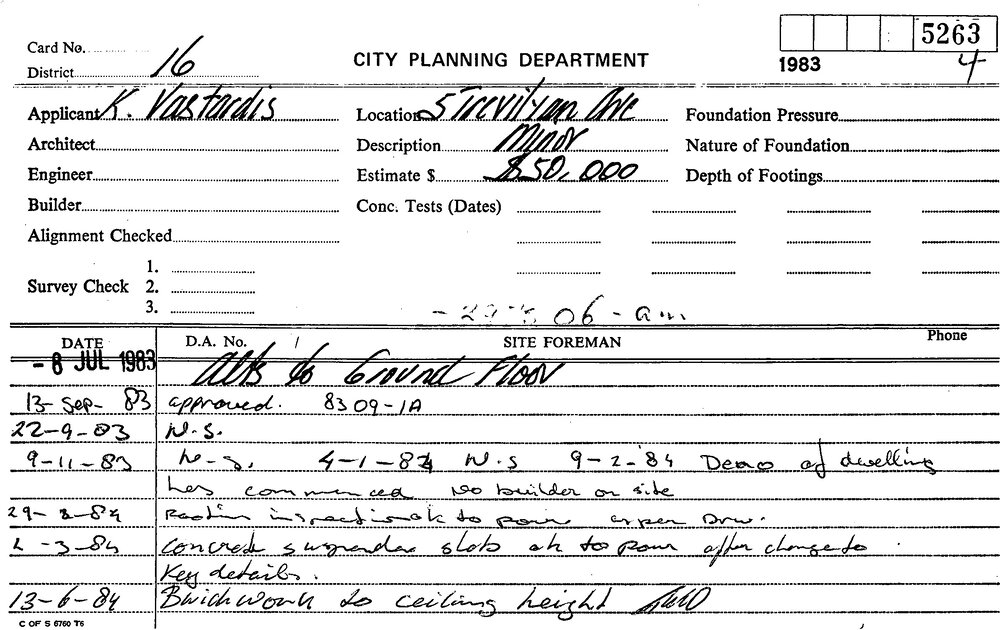 5263
1983 4
Card No.
District 16
CITY PLANNING DEPARTMENT
Applicant K. Vastardis Location 5 Trevilyan Ave Foundation Pressure
Architect Description Minor Nature of Foundation
Engineer Estimate $ $50,000 Depth of Footings
Builder Conc. Tests (Dates)
Alignment Checked
1.
Survey Check 2.
3.
06-am
DATE D.A. No. SITE FOREMAN Phone
- 8 JUL 1983 Alts to Ground Floor
13-Sep-83 approved. 8309-1A
22-9-83 N.S.
9-11-83 N.S. 4-1-84 N.S 9-2-84 Demo of dwelling
has commenced No builder on site
inspection ok to pour as per Drw.
-3-84 Concrete suspended slab ok to pour after change to
Key details.
13-6-84 Brickwork to ceiling height
C OF S 6760 T6